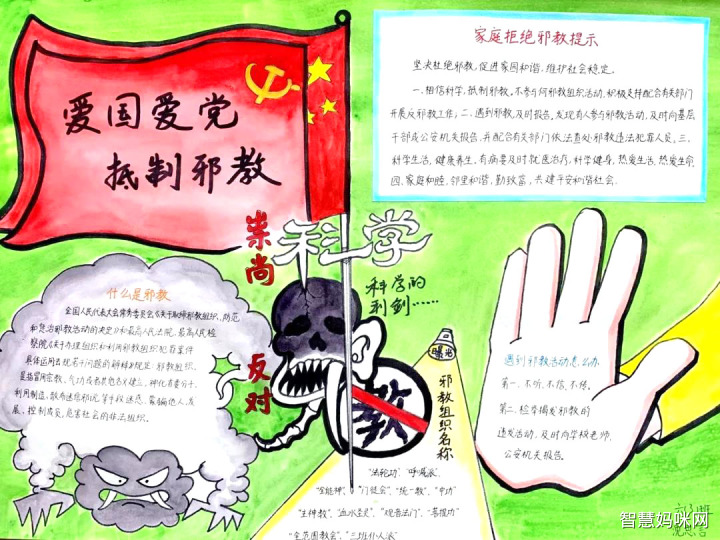 爱国爱党
抵制邪教
家庭拒绝邪教提示
坚决杜绝邪教,促进家园和谐,维护社会稳定。
一.相信科学,抵制邪教。不参与何邪教组织活动,积极支持配合有关部门
开展反邪教工作;二.遇到邪教,及时报告,发现有人参与邪教活动,及时向基层
干部或公安机关报告,并配合有关部门依法查处邪教违法犯罪人员,三.
科学生活,健康养生,有病要及时就医治疗,科学健身,热爱生活,热爱生命
四.家庭和睦,邻里和谐,勤致富,共建平安和谐社会.
崇尚
科学
科学的
利剑……
反对
教
什么是邪教
全国人民代表大会常务委员会《关于取缔邪教组织、防范
和惩治邪教活动的决定》和最高人民法院、最高人民检
察院《关于办理组织和利用邪教组织犯罪案件
具体运用法规若干问题的解释》规定:邪教组织,
是指冒用宗教、气功或者其他名义建立,神化首要分子,
利用制造、散布迷信邪说等手段迷惑、蒙骗他人,发
展、控制成员,危害社会的非法组织。
曝光
邪教组织名称
"法轮功"、"呼喊派"、
"全能神"、"门徒会"、"统一教"、"中功"
"主神教"、"血水圣灵"、"观音法门"、"菩提功"
"全范围教会"、"三班仆人派"
遇到邪教活动怎么办
第一.不听、不信、不传。
第二.检举揭发邪教的
违法活动,及时向学校老师、
公安机关报告。
智慧妈咪网